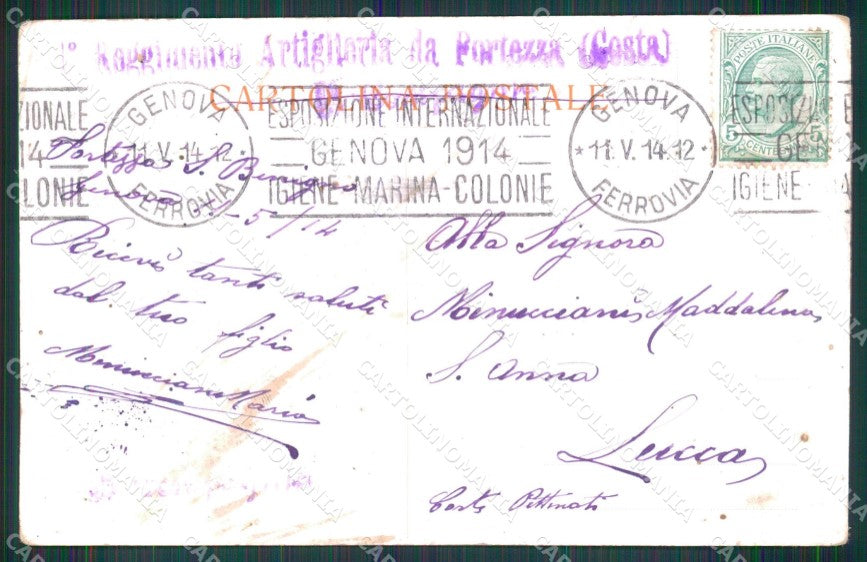 1° Reggimento Artiglieria da Fortezza (Costa)
CARTOLINA POSTALE
POSTE ITALIANE
5 CENTESIMI 5
ZIONALE
14
LONIE
GENOVA
11.V.14.12
FERROVIA
ESPOSIZIONE INTERNAZIONALE
GENOVA 1914
IGIENE-MARINA-COLONIE
GENOVA
* 11.V.14.12 *
FERROVIA
ESPOSIZIONE
GEN
IGIENE-MA
Fortezza S. Benigno
Genova -5/14
Ricevi tanti saluti
dal tuo figlio
Minucciani Mario
Alla Signora
Minucciani Maddalena
S. Anna
Lucca
Corte Pettinati
CARTOLINOMANIA